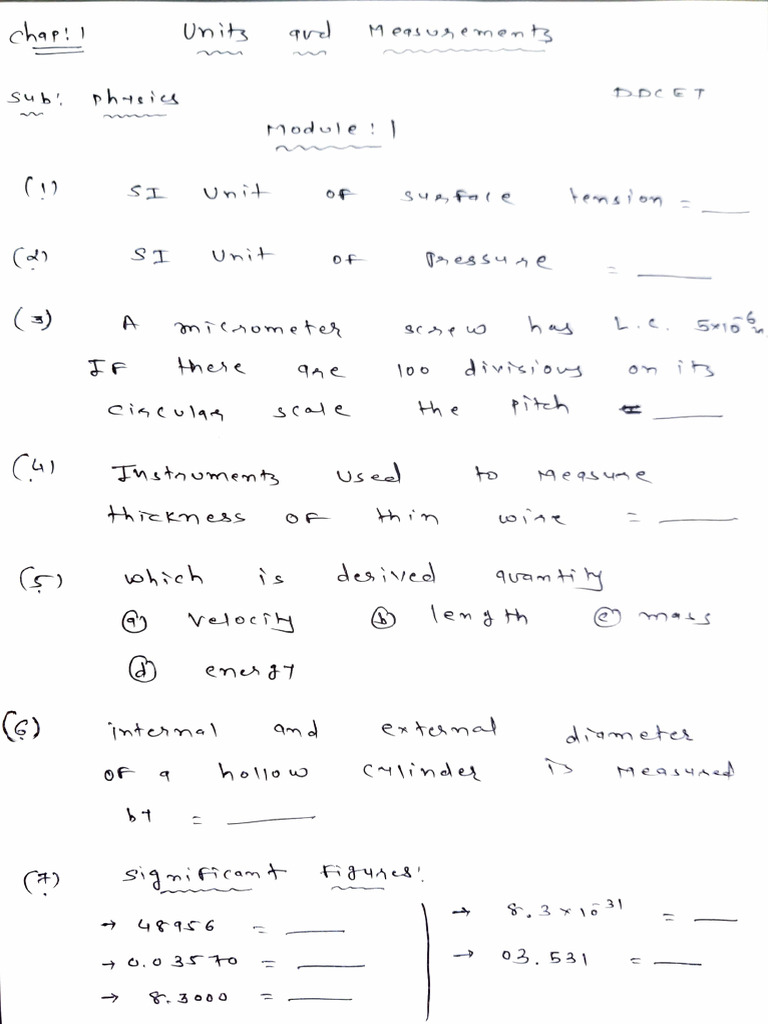 Chap: 1 Units and Measurements
Sub: Physics DDCET
Module: 1
(1) SI Unit of surface tension = __
(2) SI Unit of Pressure = __
(3) A micrometer screw has L.C. 5×10⁻⁶ m
If there are 100 divisions on its
circular scale the pitch = __
(4) Instruments used to measure
thickness of thin wire = __
(5) which is derived quantity
(a) velocity (b) length (c) mass
(d) energy
(6) internal and external diameter
of a hollow cylinder is measured
by = __
(7) Significant Figures:
→ 48956 = __
→ 0.03570 = __
→ 8.3000 = __
→ 8.3×10⁻³¹ = __
→ 03.531 = __